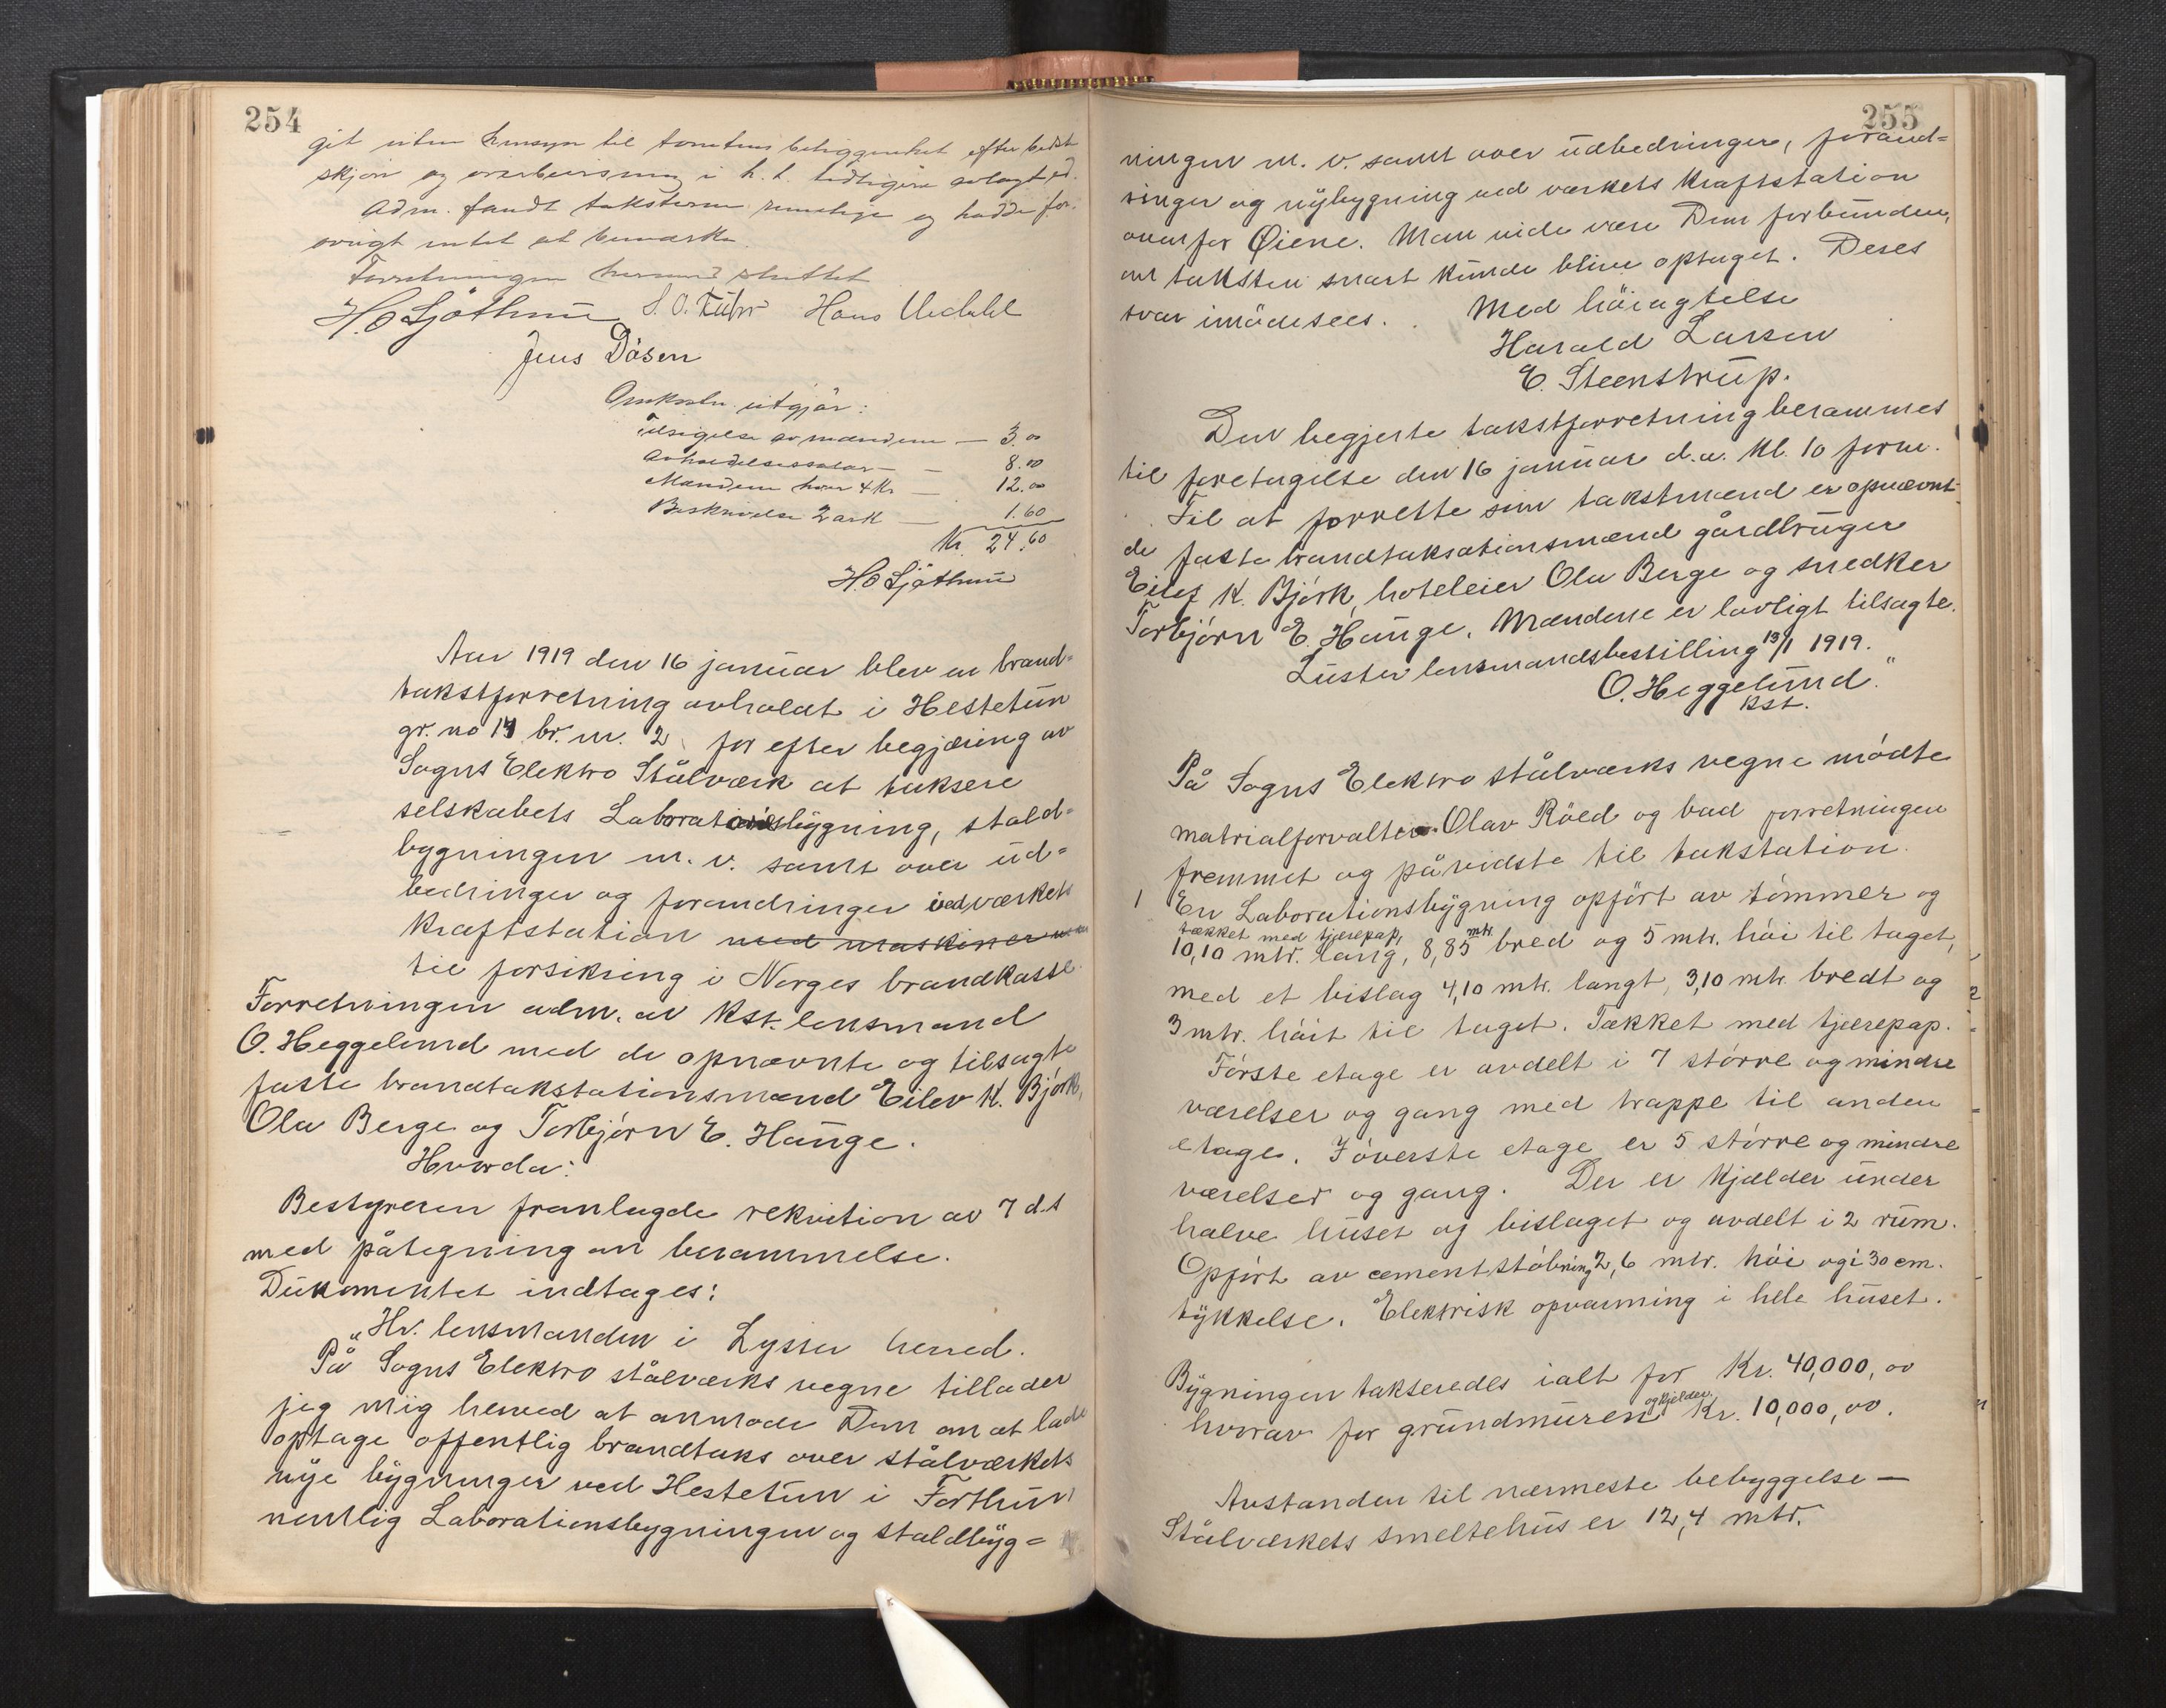 254
git uten hensyn til tomtens beliggenhet efter bedste
skjøn og overbevisning i h. t. tidligere avlagt ed.
Adm. fandt taksterne rimelige og hadde for-
øvrigt intet at bemærke.
Forretningen hermed sluttet
H. O Sjøthun S. O. Hans
Jens Døsen
Omkostn. utgjør:
Tilsigelse av mændene — 3.00
Avholdelsessalær — 8.00
Mændene hver 4 Kr — 12.00
Beskrivelse 2 ark — 1.60
Kr. 24.60
H. O Sjøthun
Aar 1919 den 16 januar blev en brand=
takstforretning avholdt i Hestetun
gr. no 14 br. nr. 2 for efter begjæring av
Sogns Elektro Stålværk at taksere
selskabets Laborationsbygning, stald=
bygningen m. v. samt over ud=
bedringer og forandringer ved værkets
kraftstation med maskiner
til forsikring i Norges brandkasse.
Forretningen adm. av kst. lensmand
O. Heggelund med de opnævnte og tilsagte
faste brandtakstationsmænd Eilev K. Bjørk,
Ola Berge og Torbjørn E. Hauge.
Hvorda:
Bestyreren framlagde rekvition av 7 d.s
med påtegning om berammelse.
Dukomentet indtages:
"Hr. lensmanden i Lyster herred.
På Sogns Elektro stålværks vegne tillader
jeg mig herved at anmode Dem om at lade
optage offentlig brandtaks over stålværkets
nye bygninger ved Hestetun i Forthun
nemlig Laborationsbygningen og staldbyg=
255
ningen m. v. samt over udbedringer, forand=
ringer og nybygning ved værkets Kraftstation
ovenfor Øiene. Man vilde være Dem forbunden,
om taksten snart kunde blive optaget. Deres
svar imødesees. Med høiagtelse
Harald Larsen
E. Steenstrup.
Den begjerte takstforretning berammes
til foretagelse den 16 januar d.a. kl. 10 form.
Til at forrette som takstmænd er opnævnt
de faste brandtaksationsmænd gårdbruger
Eilef K. Bjørk, hoteleier Ola Berge og snedker
Torbjørn E. Hauge. Mændene er lovligt tilsagte.
Luster lensmandsbestilling 13/1 1919.
O. Heggelund."
kst.
På Sogns Elektro stålværks vegne mødte
matrialforvalter Olav Røed og bad forretningen
fremmet og påvidste til takstation.
1 En Laborationsbygning opført av tømmer og
tækket med tjærepap,
10,10 mtr. lang, 8,85 mtr. bred og 5 mtr. høi til taget,
med et bislag 4,10 mtr. langt, 3,10 mtr. bredt og
3 mtr. høit til taget. Tækket med tjærepap.
Første etage er avdelt i 7 større og mindre
værelser og gang med trappe til anden
etage. I øverste etage er 5 større og mindre
værelser og gang. Der er kjælder under
halve huset og bislaget og avdelt i 2 rum.
Opført av cementstøbning 2,6 mtr. høi og i 30 cm.
tykkelse. Elektrisk opvarming i hele huset.
Bygningen takseredes ialt for Kr. 40,000,00
hvorav for grundmuren og kjelder Kr. 10,000,00.
Avstanden til nærmeste bebyggelse —
Stålværkets smeltehus er 12,4 mtr.